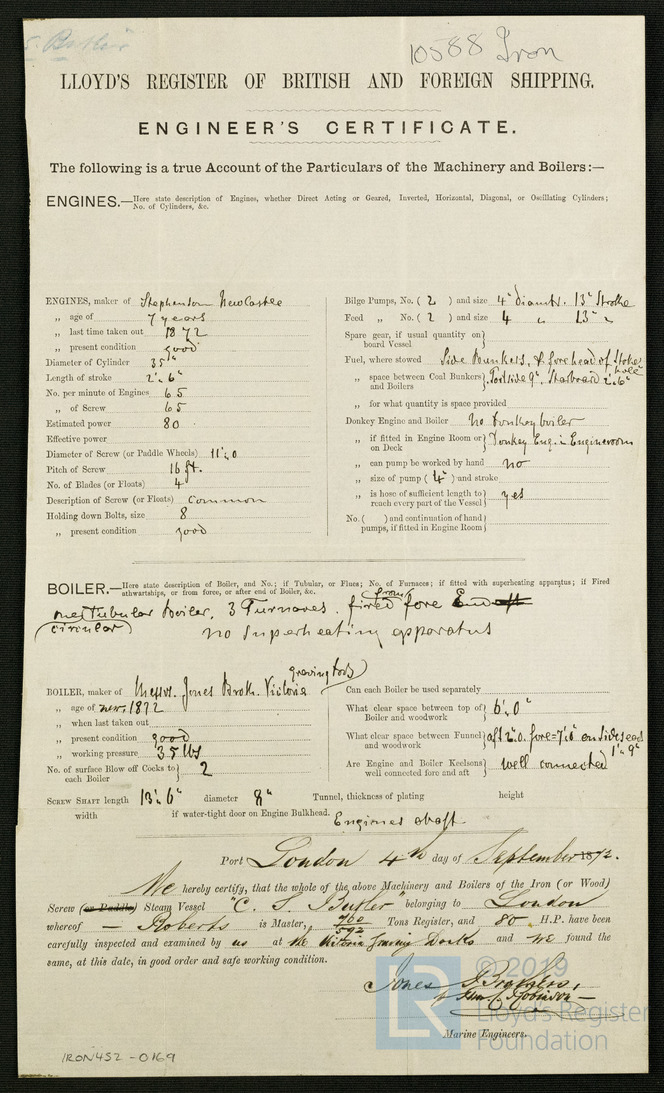 Butler
10588 Iron
LLOYD'S REGISTER OF BRITISH AND FOREIGN SHIPPING.
ENGINEER'S CERTIFICATE.
The following is a true Account of the Particulars of the Machinery and Boilers:—
ENGINES.—Here state description of Engines, whether Direct Acting or Geared, Inverted, Horizontal, Diagonal, or Oscillating Cylinders;
No. of Cylinders, &c.
ENGINES, maker of Stephenson NewCastle
„ age of 7 years
„ last time taken out 1872
„ present condition good
Diameter of Cylinder 35"
Length of stroke 2'. 6"
No. per minute of Engines 65
„ of Screw 65
Estimated power 80
Effective power
Diameter of Screw (or Paddle Wheels) 11'.0
Pitch of Screw 16 ft.
No. of Blades (or Floats) 4
Description of Screw (or Floats) Common
Holding down Bolts, size 8
„ present condition good
Bilge Pumps, No. ( 2 ) and size 4" diamtr. 13" Stroke
Feed „ No. ( 2 ) and size 4 „ 13" „
Spare gear, if usual quantity on
board Vessel
Fuel, where stowed Side Bunkers, & fore head of Stoke
hole
„ space between Coal Bunkers
and Boilers Portside 9". Starboard 2'.6"
„ for what quantity is space provided
Donkey Engine and Boiler No Donkey boiler
„ if fitted in Engine Room or
on Deck Donkey Eng. in Engineroom
„ can pump be worked by hand no
„ size of pump ( 4" ) and stroke
„ is hose of sufficient length to
reach every part of the Vessel yes
No. ( ) and continuation of hand
pumps, if fitted in Engine Room
BOILER.—Here state description of Boiler, and No.; if Tubular, or Flues; No. of Furnaces; if fitted with superheating apparatus; if Fired
athwartships, or from fore, or after end of Boiler, &c.
from
one Tubular Boiler, 3 Furnaces. fired fore End
circular
no Superheating apparatus
graving Docks
BOILER, maker of Messrs. Jones Broth. Victoria
„ age of new. 1872
„ when last taken out
„ present condition good
„ working pressure 35 lbs
No. of surface Blow off Cocks to
each Boiler 2
Can each Boiler be used separately
What clear space between top of
Boiler and woodwork 6'.0"
What clear space between Funnel
and woodwork aft 2'.0. fore=7'.0" on sides each
1'. 9"
Are Engine and Boiler Keelsons
well connected fore and aft well connected
SCREW SHAFT length 13'. 6" diameter 8" Tunnel, thickness of plating height
width if water-tight door on Engine Bulkhead. Engines abaft
Port London 4th day of September 1872.
We hereby certify, that the whole of the above Machinery and Boilers of the Iron (or Wood)
Screw (or Paddle) Steam Vessel "C. S. Butler" belonging to London
whereof — Roberts is Master, 760
592 Tons Register, and 80 H.P. have been
carefully inspected and examined by us at the Victoria Graving Docks and we found the
same, at this date, in good order and safe working condition.
Jones Brothers,
Robinson
Marine Engineers.
LR
© 2019
Lloyd's Register
Foundation
IRON452-0169